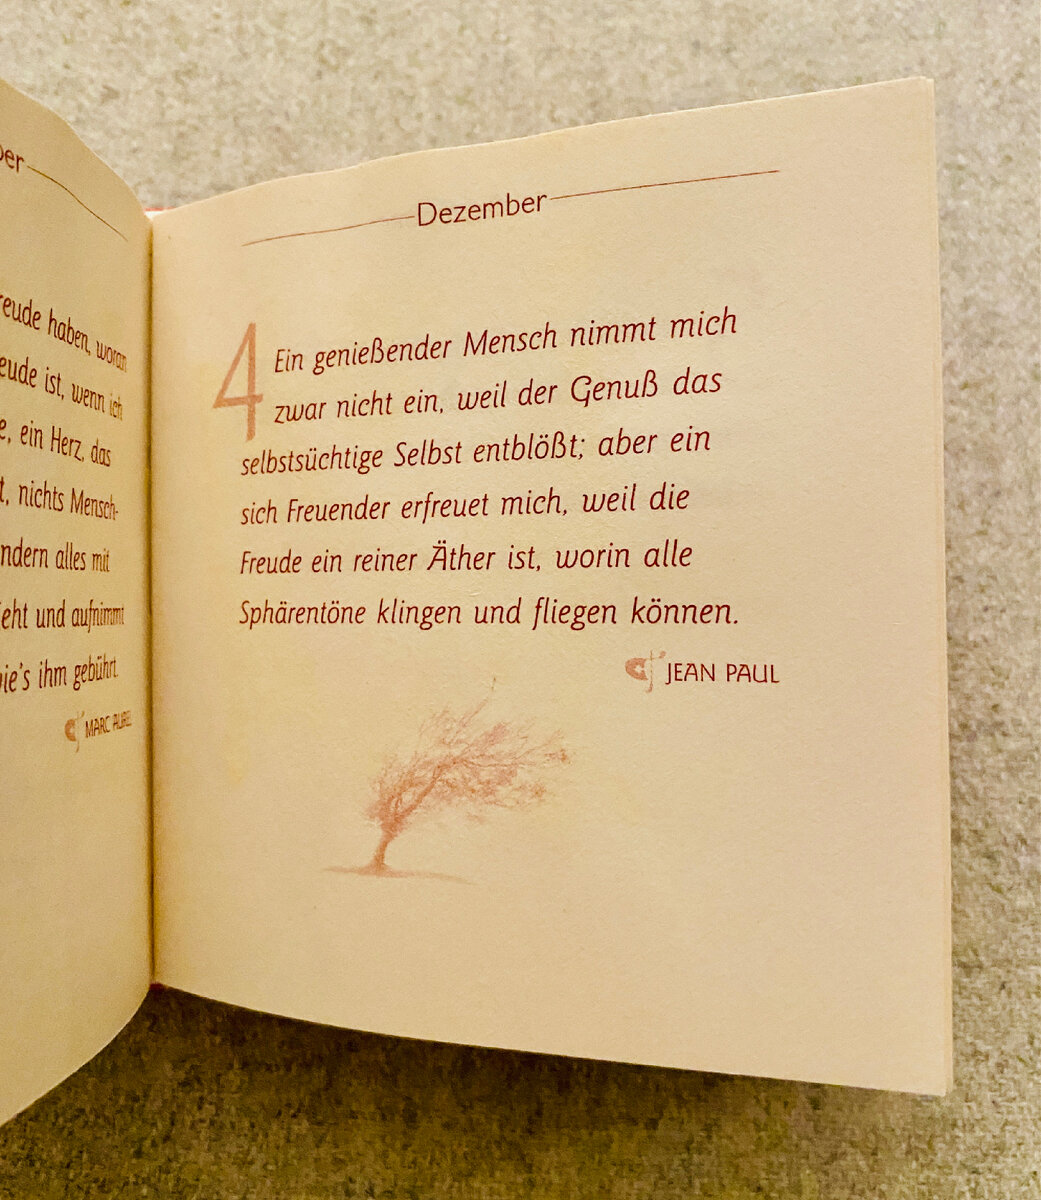 Freude haben, woran
Freude ist, wenn ich
ein Herz, das
nichts Mensch-
alles mit
und aufnimmt
wie's ihm gebührt.
MARC AUREL
Dezember
4
Ein genießender Mensch nimmt mich
zwar nicht ein, weil der Genuß das
selbstsüchtige Selbst entblößt; aber ein
sich Freuender erfreuet mich, weil die
Freude ein reiner Äther ist, worin alle
Sphärentöne klingen und fliegen können.
JEAN PAUL